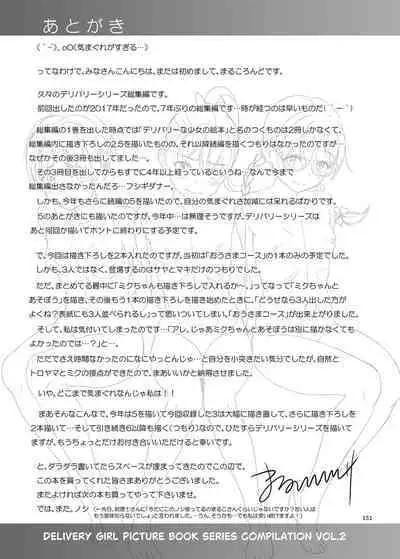 あとがき
(｀ｰ´)。oO(気まぐれがすぎる…)
ってなわけで、みなさんこんにちは、または初めまして、まるころんどです。
久々のデリバリーシリーズ総集編です。
前回出したのが2017年だったので、7年ぶりの総集編です…時が経つのは早いものだ(｀ー´)
総集編の1巻を出した時点では「デリバリーな少女の絵本」と名のつくものは2冊しかなくて、
総集編内に描き下ろしの2.5を描いたものの、それ以降続編を描くつもりはなかったのですが
なぜかその後3冊も出してました…。
その3冊目を出してからもすでに4年以上経っているというね…なんで今まで
総集編出さなかったんだろ…フシギダナー。
しかも、今年もさらに続編の5を描いたので、自分の気まぐれさ加減には呆れるばかりです。
5のあとがきにも描いたのですが、今年中…は無理そうですが、デリバリーシリーズは
あと何回か描いてホントに終わりにする予定です。
で、今回は描き下ろしを2本入れたのですが、当初は「おうさまコース」の1本のみの予定でした。
しかも、3人ではなく、登場するのはサヤとマキだけのつもりでした。
ただ、まとめてる最中に「ミクちゃんも描き下ろしで入れるか〜、」ってなって「ミクちゃんと
あそぼう」を描いて、その後もう1本の描き下ろしを描き始めたときに、「どうせなら3人出した方が
よくね？表紙にも3人並べられるし」って思いついてしまい、「おうさまコース」が出来上がりました。
そして、私は気付いてしまったのです…「アレ、じゃあミクちゃんとあそぼうは別に描かなくても
よかったのでは…？」と…。
ただでさえ時間なかったのになにやっとんじゃ…と自分を小突きたい気分でしたが、自然と
トロヤマとミクの接点ができたので、まあいいかと納得させました。
いや、どこまで気まぐれなんじゃ私は！！
まあそんなこんなで、今年は5を描いて今回収録した3は大幅に描き直して、さらに描き下ろしを
2本描いて…そして引き続き6以降も描く(つもり)なので、ひたすらデリバリーシリーズを描いて
ますが、もうちょっとだけお付き合いいただけると幸いです。
と、ダラダラ書いてたらスペースが埋まってきたのでこの辺で。
この本を買ってくれた皆さまありがとうございました。
またよければ次の本も買ってやって下さいませ。
では、また、ノシ
151
DELIVERY GIRL PICTURE BOOK SERIES COMPILATION VOL.2